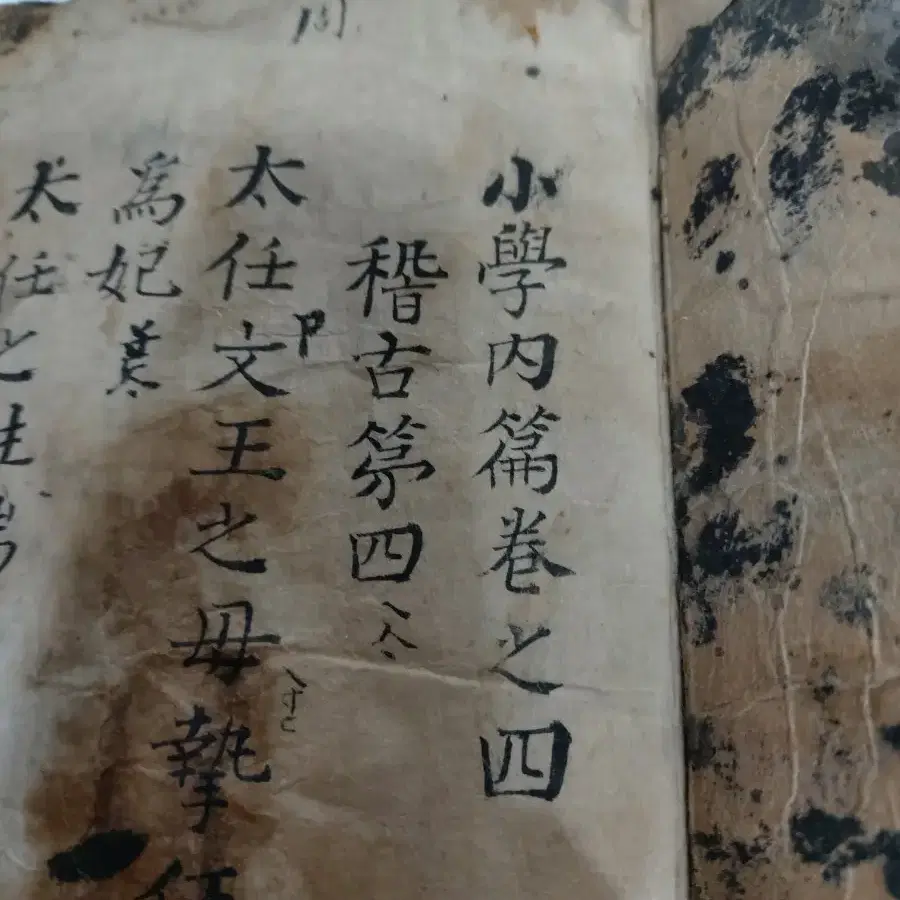 周
小學內篇卷之四
稽古第四
太任文王之母摯任
為妃
太任之性